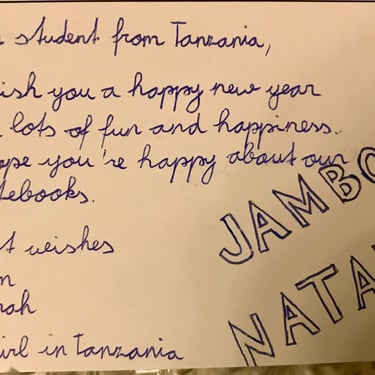 student from Tanzania,
ish you a happy new year
lots of fun and happiness.
ope you're happy about our
tebooks.
t weishes
n
ah
irl in Tanzania
JAMBO
NATA